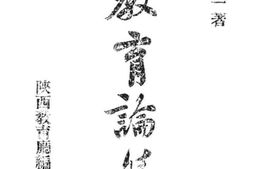 著
教育論
陝西教育廳編